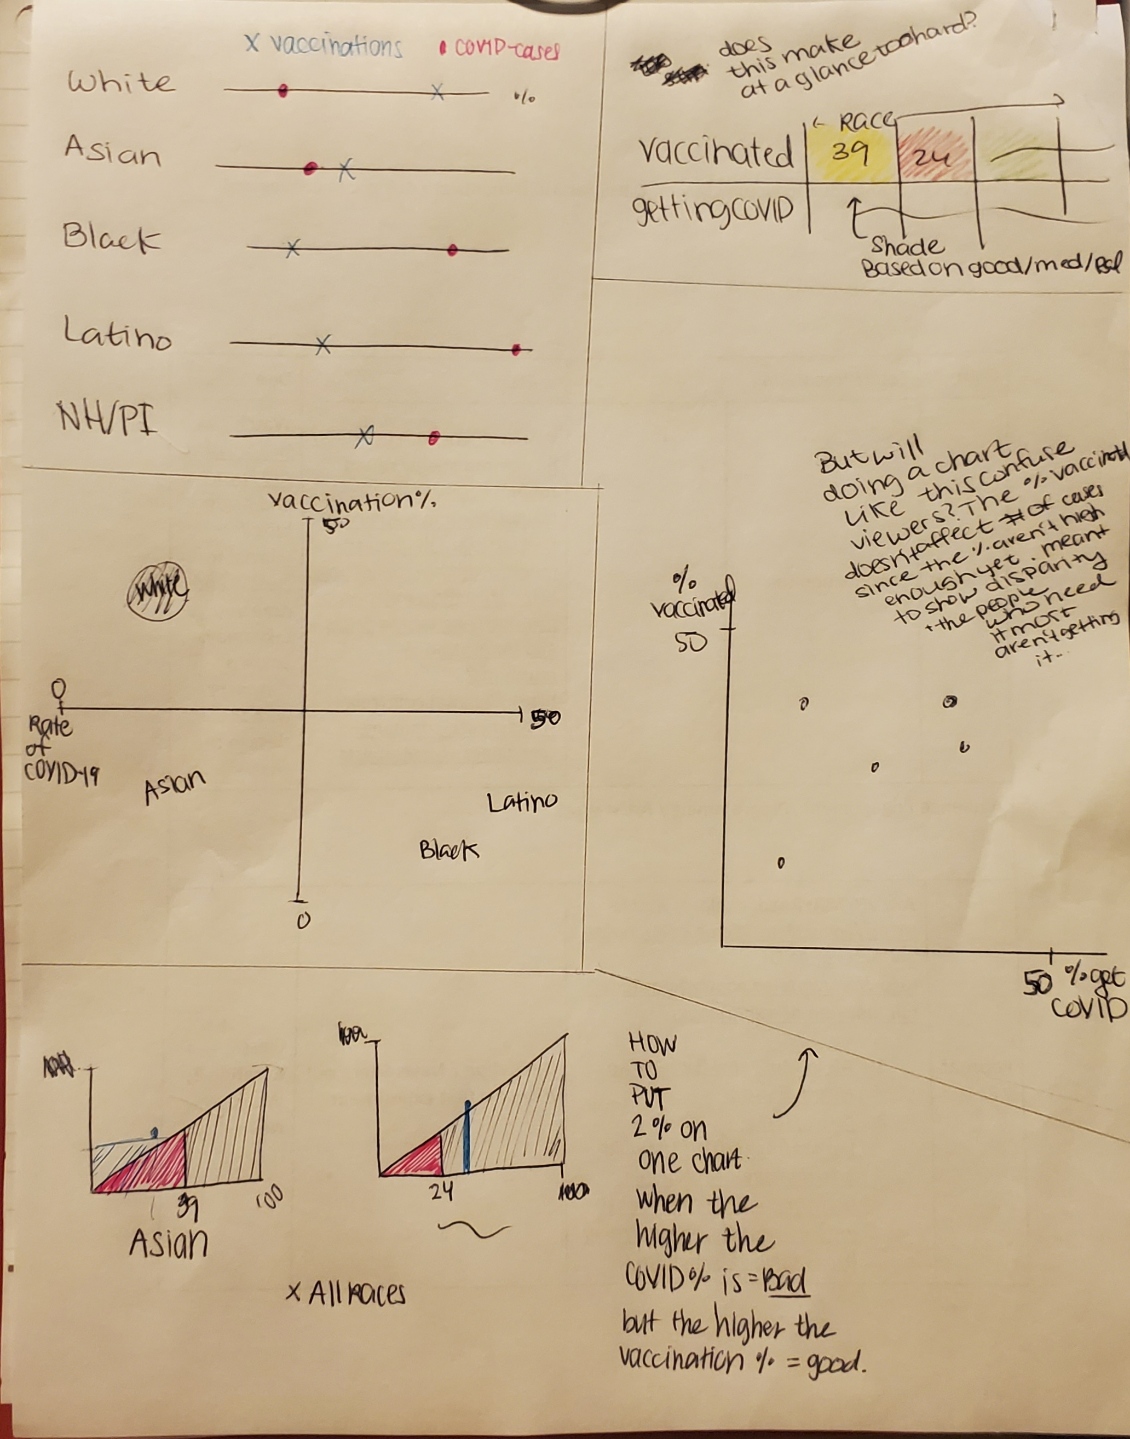 x vaccinations • COVID-cases
White
%
Asian
Black
Latino
NH/PI
does
this make
at a glance too hard?
← RACE
vaccinated 39 24
getting COVID
Shade
Based on good/med/Bad
vaccination %
50
White
0
50
Rate
of
COVID-19
Asian
Latino
Black
0
But will
doing a chart
like this confuse
viewers? The % vaccinated
doesn't affect # of cases
since the % aren't high
enough yet. meant
to show disparity
+ the people
who need
it most
aren't getting
it..
%
vaccinated
50
50 % get
COVID
39 100
Asian
100
24 100
x All Races
HOW
TO
PUT
2 % on
one chart
when the
higher the
COVID % is = Bad
but the higher the
vaccination % = good.